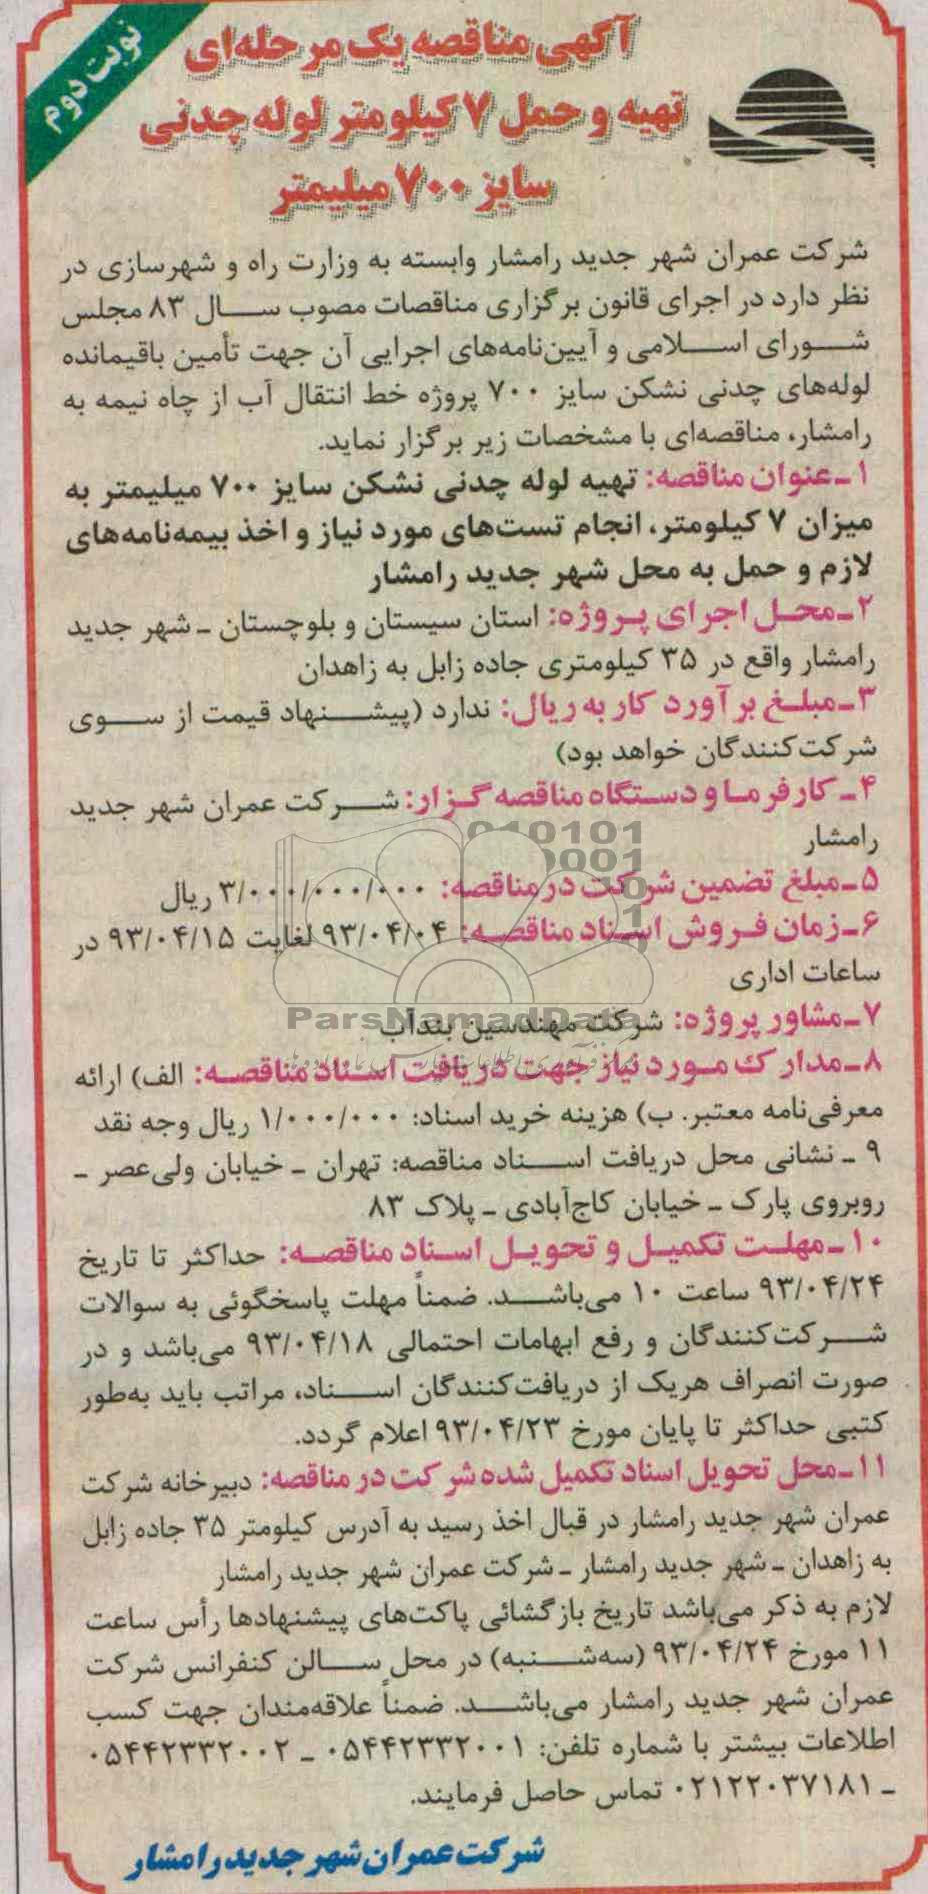 نوبت دوم
آگهی مناقصه یک مرحله‌ای
تهیه و حمل ۷ کیلومتر لوله چدنی
سایز ۷۰۰ میلیمتر
شرکت عمران شهر جدید رامشار وابسته به وزارت راه و شهرسازی در
نظر دارد در اجرای قانون برگزاری مناقصات مصوب سال ۸۳ مجلس
شورای اسلامی و آیین‌نامه‌های اجرایی آن جهت تأمین باقیمانده
لوله‌های چدنی نشکن سایز ۷۰۰ پروژه خط انتقال آب از چاه نیمه به
رامشار، مناقصه‌ای با مشخصات زیر برگزار نماید.
۱ـ عنوان مناقصه: تهیه لوله چدنی نشکن سایز ۷۰۰ میلیمتر به
میزان ۷ کیلومتر، انجام تست‌های مورد نیاز و اخذ بیمه‌نامه‌های
لازم و حمل به محل شهر جدید رامشار
۲ـ محل اجرای پروژه: استان سیستان و بلوچستان ـ شهر جدید
رامشار واقع در ۳۵ کیلومتری جاده زابل به زاهدان
۳ـ مبلغ برآورد کار به ریال: ندارد (پیشنهاد قیمت از سوی
شرکت‌کنندگان خواهد بود)
۴ـ کارفرما و دستگاه مناقصه گزار: شرکت عمران شهر جدید
رامشار
۵ـ مبلغ تضمین شرکت در مناقصه: ۳/۰۰۰/۰۰۰/۰۰۰ ریال
۶ـ زمان فروش اسناد مناقصه: ۹۳/۰۴/۰۴ لغایت ۹۳/۰۴/۱۵ در
ساعات اداری
۷ـ مشاور پروژه: شرکت مهندسین بندآب
ParsNamadData
۸ـ مدارک مورد نیاز جهت دریافت اسناد مناقصه: الف) ارائه
معرفی‌نامه معتبر. ب) هزینه خرید اسناد: ۱/۰۰۰/۰۰۰ ریال وجه نقد
۹ ـ نشانی محل دریافت اسناد مناقصه: تهران ـ خیابان ولی‌عصر ـ
روبروی پارک ـ خیابان کاج‌آبادی ـ پلاک ۸۳
۱۰ـ مهلت تکمیل و تحویل اسناد مناقصه: حداکثر تا تاریخ
۹۳/۰۴/۲۴ ساعت ۱۰ می‌باشد. ضمناً مهلت پاسخگوئی به سوالات
شرکت‌کنندگان و رفع ابهامات احتمالی ۹۳/۰۴/۱۸ می‌باشد و در
صورت انصراف هریک از دریافت‌کنندگان اسناد، مراتب باید به‌طور
کتبی حداکثر تا پایان مورخ ۹۳/۰۴/۲۳ اعلام گردد.
۱۱ـ محل تحویل اسناد تکمیل شده شرکت در مناقصه: دبیرخانه شرکت
عمران شهر جدید رامشار در قبال اخذ رسید به آدرس کیلومتر ۳۵ جاده زابل
به زاهدان ـ شهر جدید رامشار ـ شرکت عمران شهر جدید رامشار
لازم به ذکر می‌باشد تاریخ بازگشائی پاکت‌های پیشنهادها رأس ساعت
۱۱ مورخ ۹۳/۰۴/۲۴ (سه‌شنبه) در محل سالن کنفرانس شرکت
عمران شهر جدید رامشار می‌باشد. ضمناً علاقه‌مندان جهت کسب
اطلاعات بیشتر با شماره تلفن: ۰۵۴۴۲۳۳۲۰۰۱ ـ ۰۵۴۴۲۳۳۲۰۰۲
ـ ۰۲۱۲۲۰۳۷۱۸۱ تماس حاصل فرمایند.
شرکت عمران شهر جدید رامشار